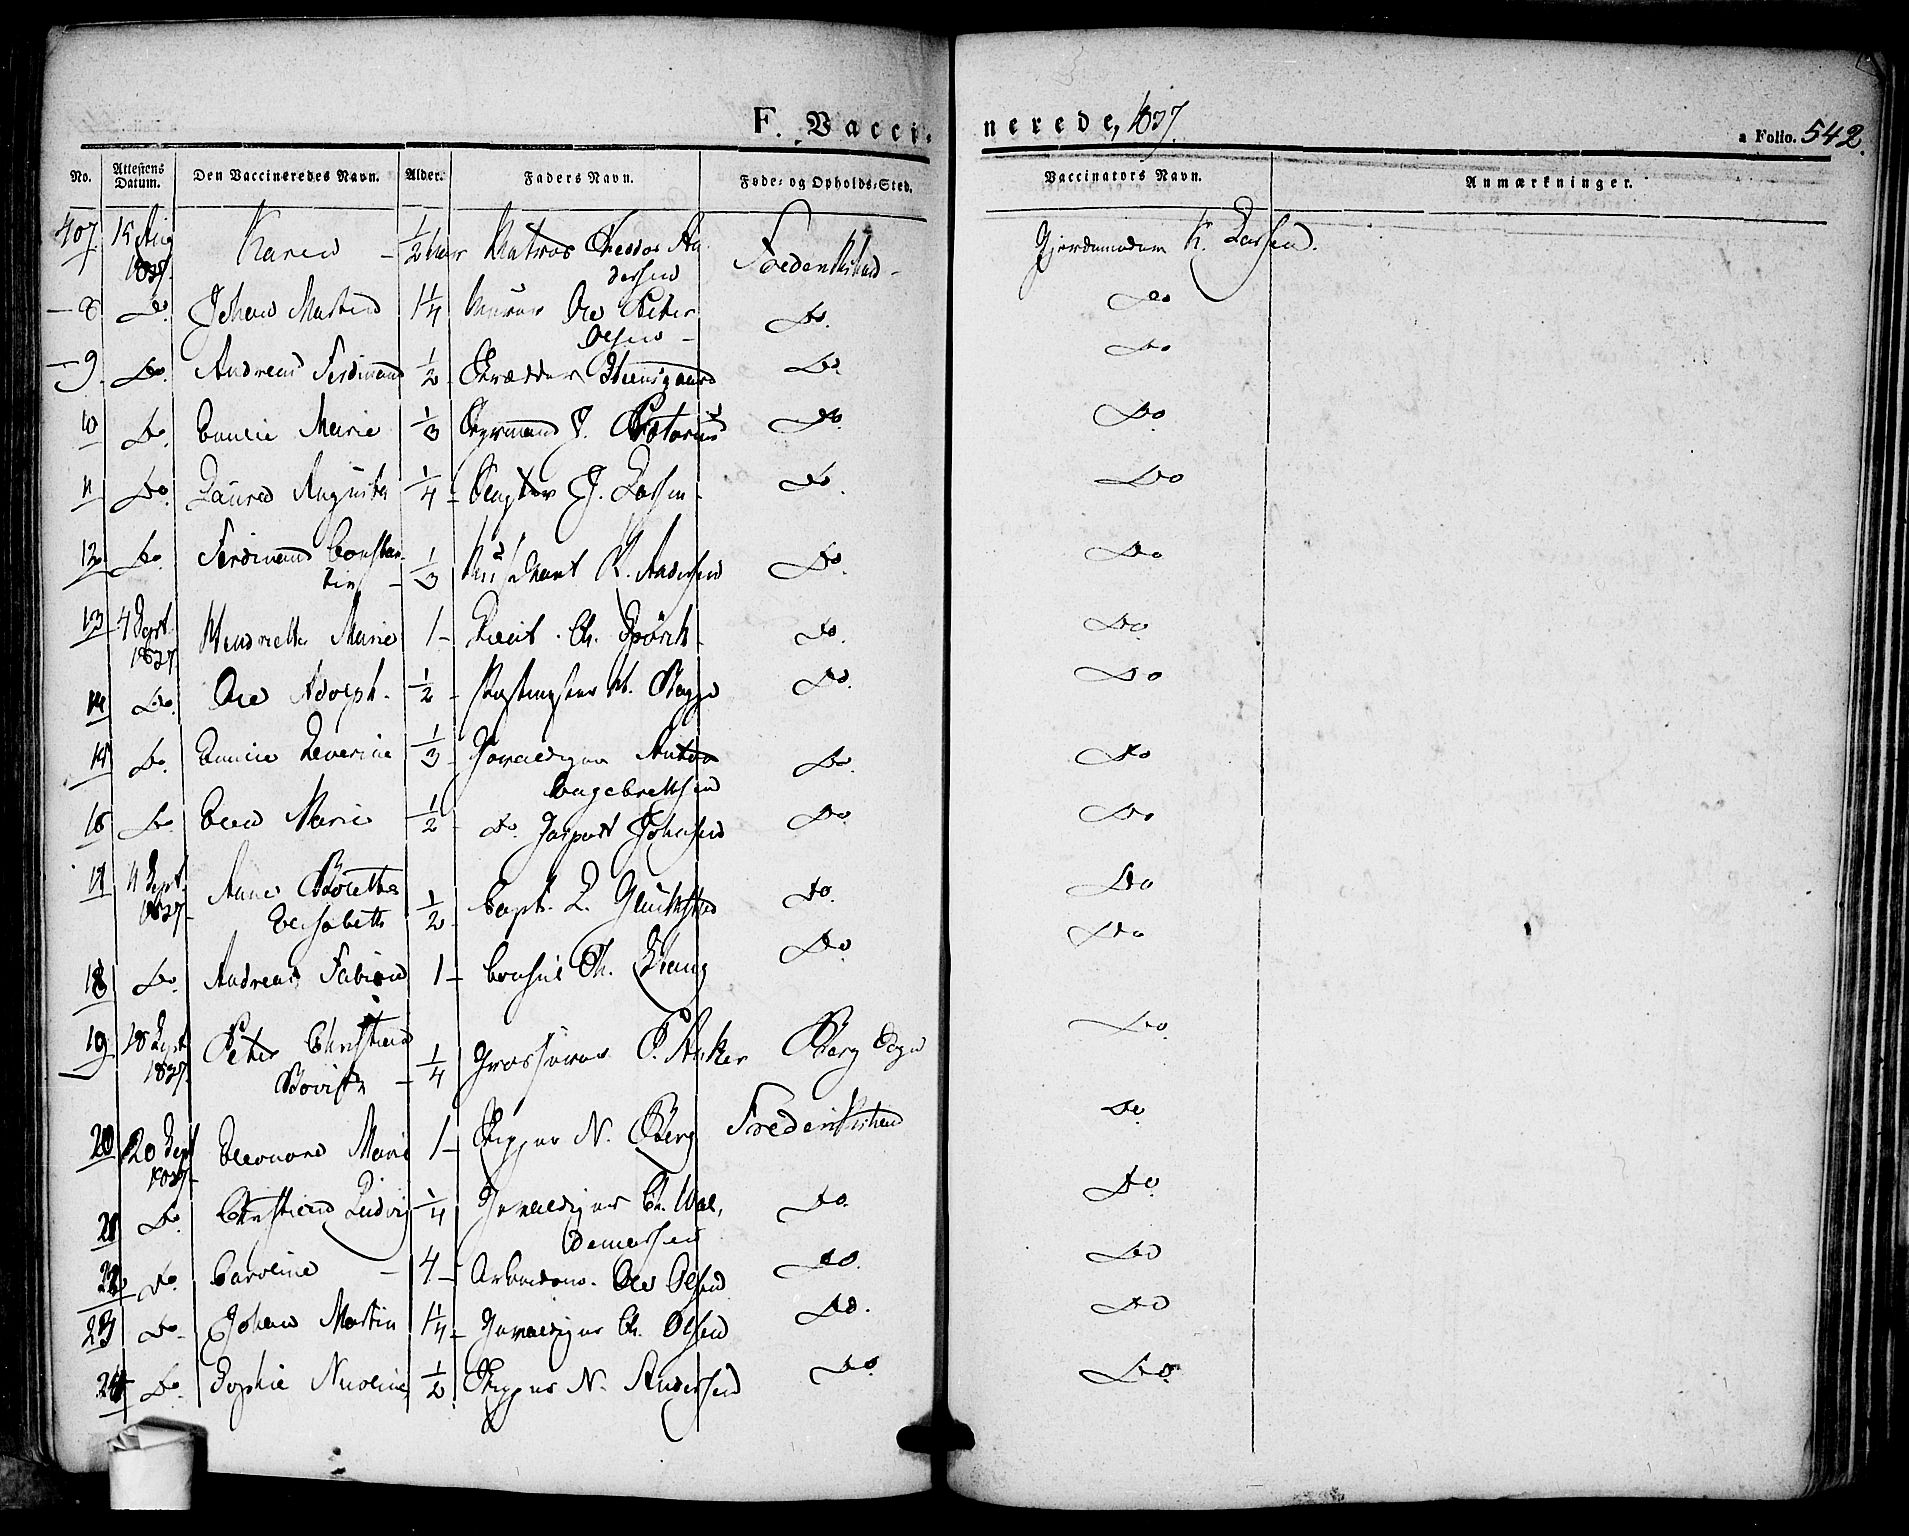 F. Vacci-
nerede, 1837.
a Folio. 542.
No. Attestens Datum. Den Vaccineredes Navn. Alder. Faders Navn. Føde- og Opholds-Sted. Vaccinators Navn. Anmærkninger.
407 15 Aug 1837. Karen - 1/2 Aar Matros An-
dersen Frederikshald - Gjordemodem K. Larsen.
- 8 Do. Johan Martin 1 1/4 Murer Ole Peter
Olsen - Do. Do
- 9. Do. Andreas Ferdinand 1/2 Skrædder Steensgaard Do. Do
10 Do. Emilie Marie 1/3 Styrmand J. Do. Do
11 Do. Laura Augusta 1/4 - J. Larsen - Do. Do
12 Do. Ferdinand Constan-
tin - 1/3 K. Andersen Do. Do
13 4 Sept. 1837. Hendrette Marie 1 - Lieut. Ch. Spörck - Do. Do
14 Do. Ole Adolph. 1/2 - Postmester M. Bagge Do. Do
15 Do. Emilie Severine 1/3 Inraadiger Anton
Engebrettsen Do. Do
16 Do. Elen Marie 1/2 - Do. Jaspart Johnsen Do. Do
17 11 Sept. 1837. AnneBorettha
Elisabeth 1/2 - Capt. L. Glückstad Do. Do
18 Do. Andreas Fabian 1 - Consul Th. Stang Do Do
19. 18 Sept. 1837. Peter Christian
- 1/4 Grosserer P. Anker Berg Sogn Do
20 20 Sept 1837. Eleonore Marie 1 - Skipper N. Berg Frederikshald Do
21 Do. Christian Ludvig 1/4 Ch. Wal-
demarsen Do. Do
22 Do. Caroline - 4 - Arbeidsm. Ole Olsen Do. Do
23 Do - Johan Martin 1 1/4 - Ch. Olsen Do. Do
24 Do. Sophie Nicoline 1/2 Skipper N. Andersen Do. Do